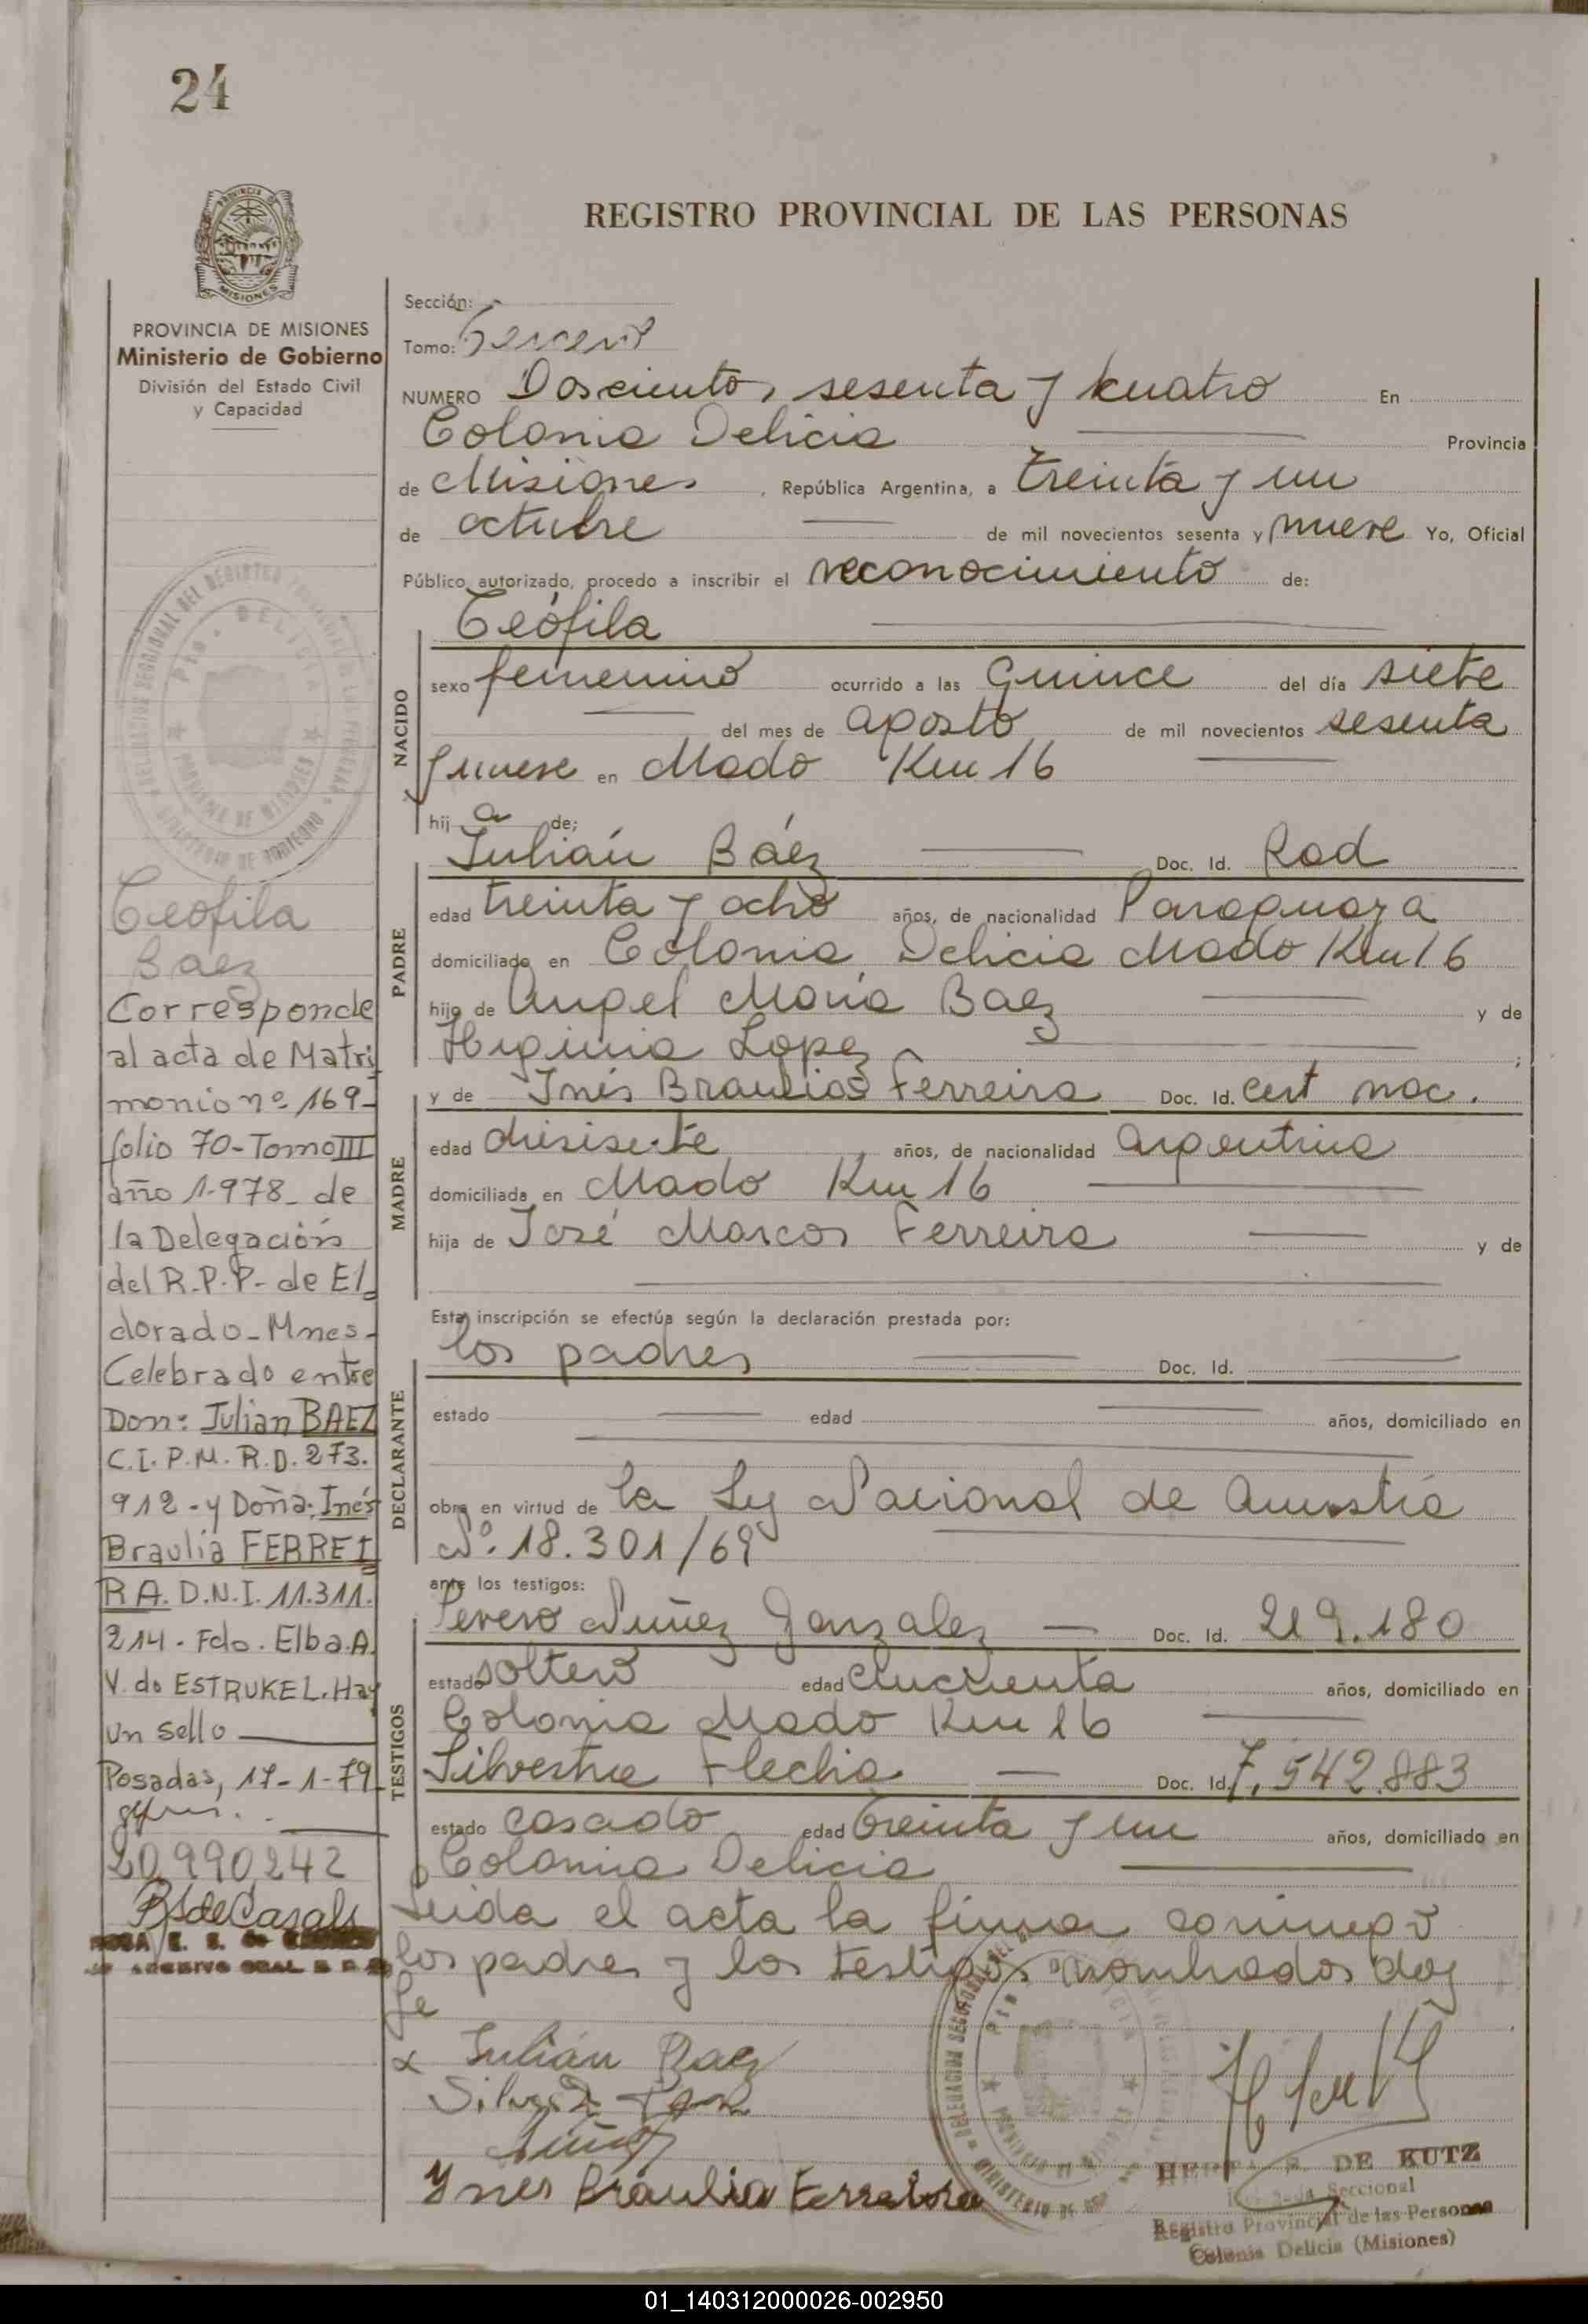 24
REGISTRO PROVINCIAL DE LAS PERSONAS
PROVINCIA DE MISIONES
Ministerio de Gobierno
División del Estado Civil
y Capacidad
Sección:
Tomo: Tercero
NUMERO Doscientos sesenta y cuatro En
Colonia Delicia Provincia
de Misiones, República Argentina, a treinta y un
de octubre de mil novecientos sesenta y nueve Yo, Oficial
Público autorizado, procedo a inscribir el reconocimiento de:
Teófila
NACIDO
sexo femenino ocurrido a las quince del día siete
del mes de agosto de mil novecientos sesenta
y nueve en Mado Km 16
hij a de;
Julián Báez Doc. Id. Rad
PADRE
edad treinta y ocho años, de nacionalidad Paraguaya
domiciliado en Colonia Delicia Mado Km 16
hijo de Angel María Baez y de
Higinia Lopez ;
y de Inés Braulia Ferreira Doc. Id. cert nac.
MADRE
edad disisiete años, de nacionalidad argentina
domiciliada en Mado Km 16
hija de José Marcos Ferreira y de
Esta inscripción se efectúa según la declaración prestada por:
los padres Doc. Id.
DECLARANTE
estado edad años, domiciliado en
obra en virtud de la Ley Nacional de Amnistía
Nº. 18.301/69
ante los testigos:
Nuñez Gonzalez Doc. Id. 219.180
TESTIGOS
estado soltero edad cincuenta años, domiciliado en
Colonia Mado Km 16
Silvestre Flecha Doc. Id. 7.542.883
estado casado edad treinta y un años, domiciliado en
Colonia Delicia
Leida el acta la firman conmigo
los padres y los testigos nombrados doy
fe
Julián Baez
Ynes Braulia Ferreira
DE KUTZ
Seccional
Registro Provincial de las Personas
Colonia Delicia (Misiones)
Teofila
Baez
Corresponde
al acta de Matri
monio nº 169-
folio 70-Tomo III
año 1.978- de
la Delegación
del R.P.P- de El
dorado-Mnes-
Celebrado entre
Don: Julian BAEZ
C.I.P.M. R.D. 273.
912 - y Doña: Inés
Braulia FERREI
RA. D.N.I. 11.311.
214 - Fdo. Elba.A.
V. de ESTRUKEL. Hay
un sello
Posadas, 17-1-79-
20.990.242
01_140312000026-002950